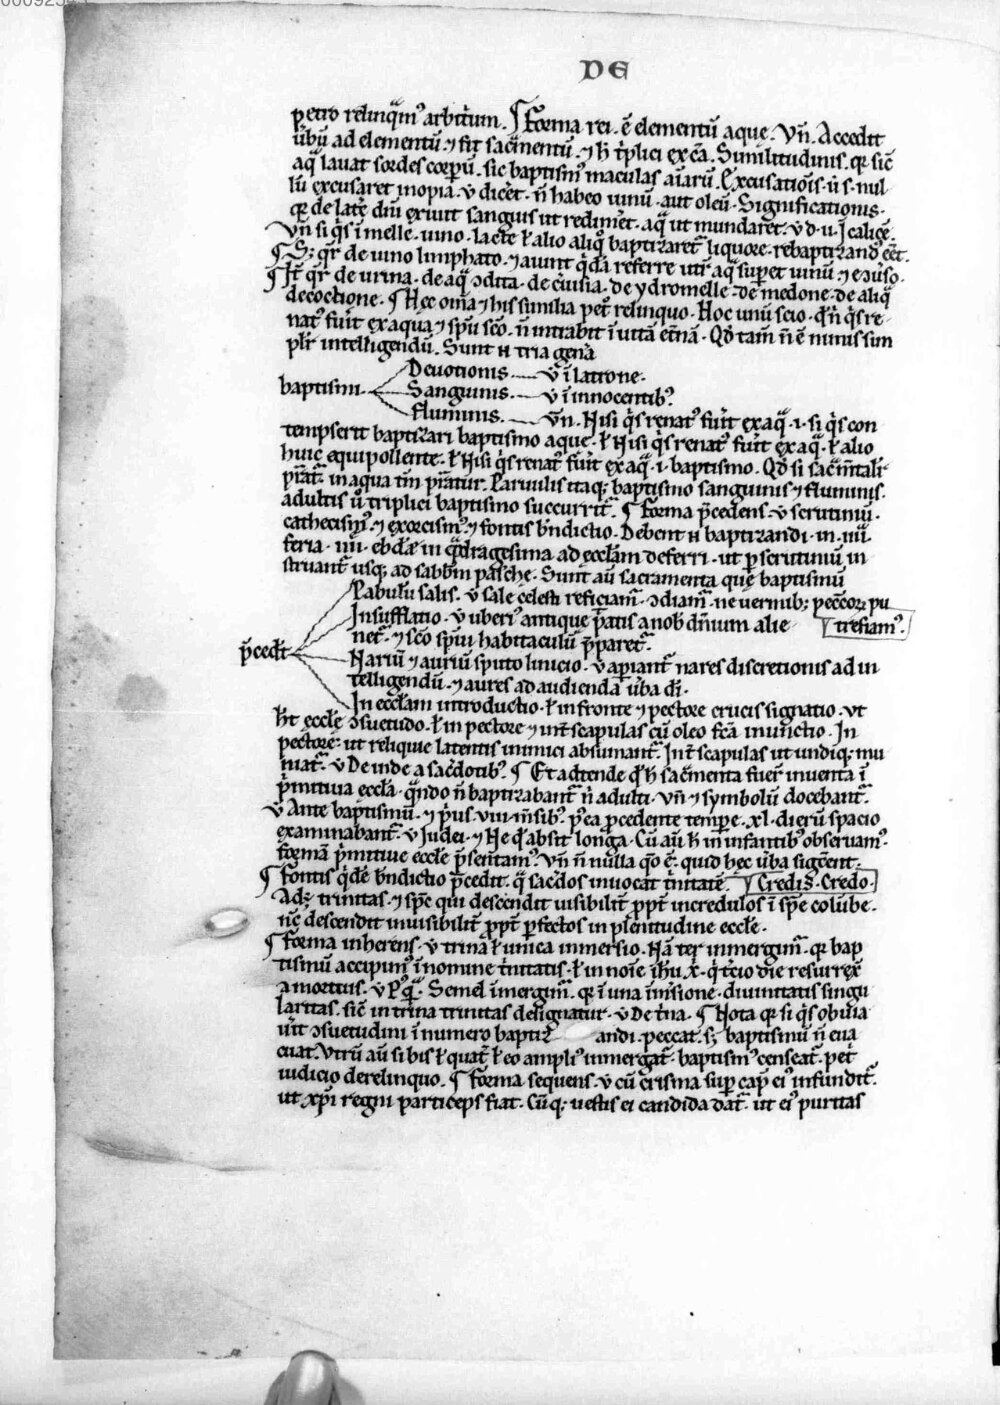 DE
petro relinq̄mꝰ arbitrum. ¶ Forma rei. ē elementū aque. vn̄. Accedit
ūbū ad elementū ⁊ fit sac̄mentū. ⁊ h̄ t̄plici ex cā. Similitudinis. qꝛ sic̄
aq̄ lauat sordes corporū. sic baptismꝰ maculas aīarū. Excusatiōis. ū s. nul
lū excusaret inopia. v dic̄et. n̄ habeo uinū. aut oleū. Significationis.
qꝛ de lat̄e dn̄i exiuit sanguis ut redim̄et. aq̄ ut mundaret. v d. u. ī calice.
vn̄ si q̄s ī melle. uino. lacte ł alio aliq̊ baptizaret̄ liquore. rebaptizandꝰ eēt.
¶ S; q̄r̄ de uino limphato. ⁊ aiunt q̄dā referre utr̄ aq̄ suꝑet uinū ⁊ ecōuͥso.
¶ It̄ q̄r̄ de urina. de aq̄ ↄdita. de c̄uisia. de ydromelle. de medone. de aliq̄
decoctione. ¶ Hec om̄ia ⁊ his similia pet̄ relinquo. Hoc unū scio. qd̄ n̄ q̄s re
natꝰ fuīt ex aqua ⁊ spū sc̄o. n̄ intrabit ī uitā et̄nā. Qd̄ tam̄ n̄ ē nimis sim
plr̄ intelligendū. Sunt n̄ tria genā
Deuotionis v ī latrone.
baptismi Sanguinis. v ī innocentibꝰ.
fluminis. vn̄. Nisi q̄s renatꝰ fuīt ex aq̄. i. si q̄s con
tempserit baptizari baptismo aque. ł Nisi q̄s renatꝰ fuīt ex aq̄. ł alio
huic equipollente. ł Nisi q̄s renatꝰ fuīt ex aq̄. i. baptismo. Qd̄ si sac̄m̄tali
p̄iat̄. in aqua tm̄ p̄iatur. Paruulis itaq; baptismo sanguinis ⁊ fluminis.
adultis ū triplici baptismo succurrit̄. ¶ Forma p̄cedens. v scrutiniū.
cathecismꝰ. ⁊ exorcismꝰ. ⁊ fontis bn̄dictio. Debent n̄ baptizandi. in. iiii.
feria. iiii. ebdꝰe in q̄dragesima ad eccl̄am deferri. ut ꝑ scrutiniū in
struant̄ usq; ad sabb̄m pasche. Sunt aū sacramenta que baptismū
Pabulū salis. v sale celesti reficiam̄. ↄdiam̄. ne uermib; pecc̄oꝝ pu
Insufflatio. v uberiꝰ antique p̄atis a nob̄ dn̄ium alie trefiamꝰ.
net̄. ⁊ sc̄o spūi habitaculū p̄paret̄.
p̄cedūt Nariū ⁊ auriū sputo linicio. v aꝑiant̄ nares discretionis ad in
telligendū. ⁊ aures ad audiendā ūba dī.
In eccl̄am introductio. ł in fronte ⁊ pectore crucis signatio. vt
h̄t eccl̄e ↄsuetudo. ł in pectore ⁊ int̄ scapulas cū oleo fc̄a inunctio. In
pectore. ut reliquie latentis inimici absumant̄. Int̄ scapulas ut undiq; mu
niat̄. v Deinde a sac̄dotibꝰ. ¶ Et adtende qd̄ h̄ sac̄menta fuer̄ inuenta ī
p̄mitiua eccl̄a. q̄ndo n̄ baptizabant̄ n̄ adulti. vn̄ ⁊ symbolū docebant̄.
v Ante baptismū. ⁊ p̄us. viii. m̄sibꝰ. p̄ea p̄cedente tempe. xl. dierū spacio
examinabant̄. v Judei. ⁊ Ne qd̄ absit longa. Cū aū h̄ in infantibꝰ obseruamꝰ.
formā p̄mitiue eccl̄e p̄sentamꝰ. vn̄ n̄ nulla q̄o ē. quid hec ūba siḡcent.
¶ Fontis q̄dē bn̄dictio p̄cedit. q̄ sac̄dos inuocat t̄nitatē. Credis. Credo.
Ad; trinitas. ⁊ spc̄ qui descendit uisibilit̄ ꝓpt̄ incredulos ī spē colūbe.
nc̄ descendit inuisibilit̄ ꝓpt̄ ꝑfectos in plenitudine eccl̄e.
¶ Forma inherens. v trina ł unica immersio. Nā ter inmergim̄. qꝛ bap
tismū accipimꝰ ī nomine t̄nitatis. ł in noīe ihū. x̄. q̄ t̄cio die resurrex̄
a mortuis. v Pꝰq̄. Semel īmergim̄. qꝛ ī una īm̄sione. diuinitatis singu
laritas. sic̄ in trina trinitas designatur. v De t̄na. ¶ Nota qꝛ si q̄s obuia
uīt ↄsuetudini ī numero baptiz andi. peccat. s; baptismū n̄ eua
cuat. Vtrū aū si bis ł quat̄ ł eo ampliꝰ inmergat̄. baptismꝰ censeat̄. pet̄
iudicio derelinquo. ¶ Forma sequens. v cū crisma suꝑ cap̄ eiꝰ infundit̄.
ut xp̄i regni particeps fiat. Cū q; uestis ei candida dat̄. ut eiꝰ puritas